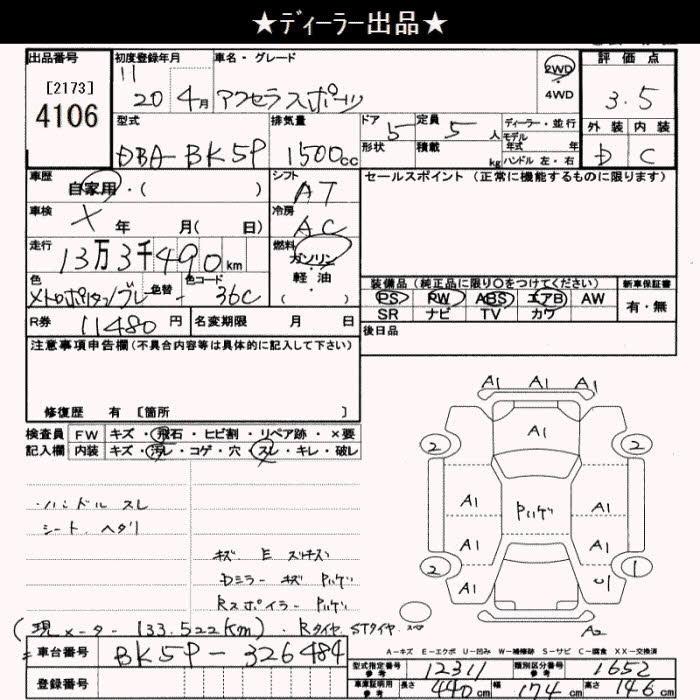 ★ディーラー出品★
出品番号
[2173]
4106
初度登録年月
11
20 4月
車名・グレード
アクセラスポーツ
2WD
・
4WD
評価点
3.5
外装 内装
D C
型式
DBA-BK5P
排気量
1500cc
ドア 5
形状
定員 5 人
積載 kg
ディーラー・並行
モデル
年式 年
ハンドル 左・右
車歴
自家用・( )
シフト
AT
セールスポイント(正常に機能するものに限ります)
車検
X 年 月( 日)
冷房
AC
走行
13万3千490km
燃料
ガソリン
・
軽油
・
( )
色
メトロポリタンブレー
色替
色コード
36C
装備品(純正品に限り○をつけてください)
PS PW ABS エアB AW
SR ナビ TV カワ
新車保証書
有・無
R券 11480 円
名変期限 月 日
後日品
注意事項申告欄(不具合内容等は具体的に記入して下さい)
修復歴 有 [箇所 ]
検査員 FW キズ・飛石・ヒビ割・リペア跡・×要
記入欄 内装 キズ・汚レ・コゲ・穴・スレ・キレ・破レ
・ハンドル スレ
シート、ヘタリ
キズ、E スリキズ
Dミラー キズ Pハゲ
Rスポイラー Pハゲ
(現メーター 133,522km)・Rタイヤ、STタイヤ
A1 A1 A1
2 A1 2
A1 Pハゲ A1
A1 A1
2 A1 U1 1
A2
A-キズ E-エクボ U-凹み W-補修跡 S-サビ C-腐食 XX-交換済
車台番号 BK5P-326484
登録番号
型式指定番号 参考 12311
類別区分番号 参考 1652
車庫証明用 参考 長さ 440cm 幅 174cm 高さ 146cm